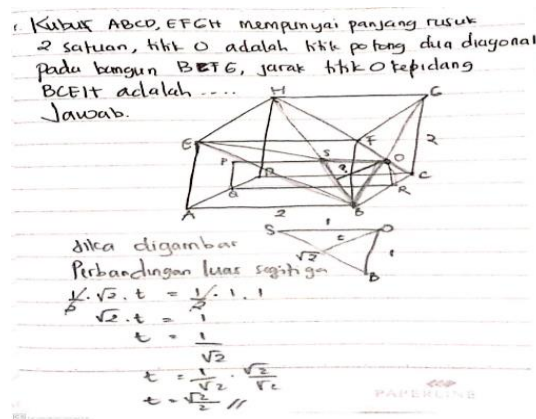 1. Kubus ABCD, EFGH mempunyai panjang rusuk
2 satuan, titik O adalah titik potong dua diagonal
pada bangun BCFG, jarak titik O kepidang
BCEH adalah ....
Jawab.
H G
E F 2
P S O
D C
Q R
A 2 B
S 1 O
Jika digambar t
Perbandingan luas segitiga √2 1
B
1/2 . √2 . t = 1/2 . 1 . 1
√2 . t = 1
t = 1/√2
t = 1/√2 . √2/√2
t = √2/2 //
PAPERLINE